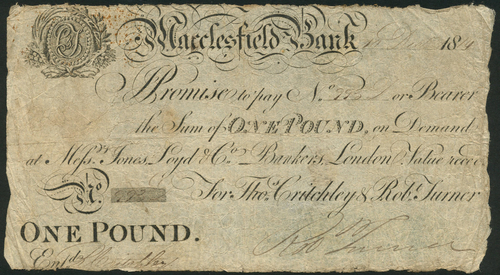 Macclesfield Bank 181
I Promise to pay No. or Bearer
the Sum of ONE POUND, on Demand
at Messrs. Jones, Loyd & Co. Bankers, London Value recd.
No. For Thos. Critchley & Robt. Turner
ONE POUND.
Robt Turner
Entd.